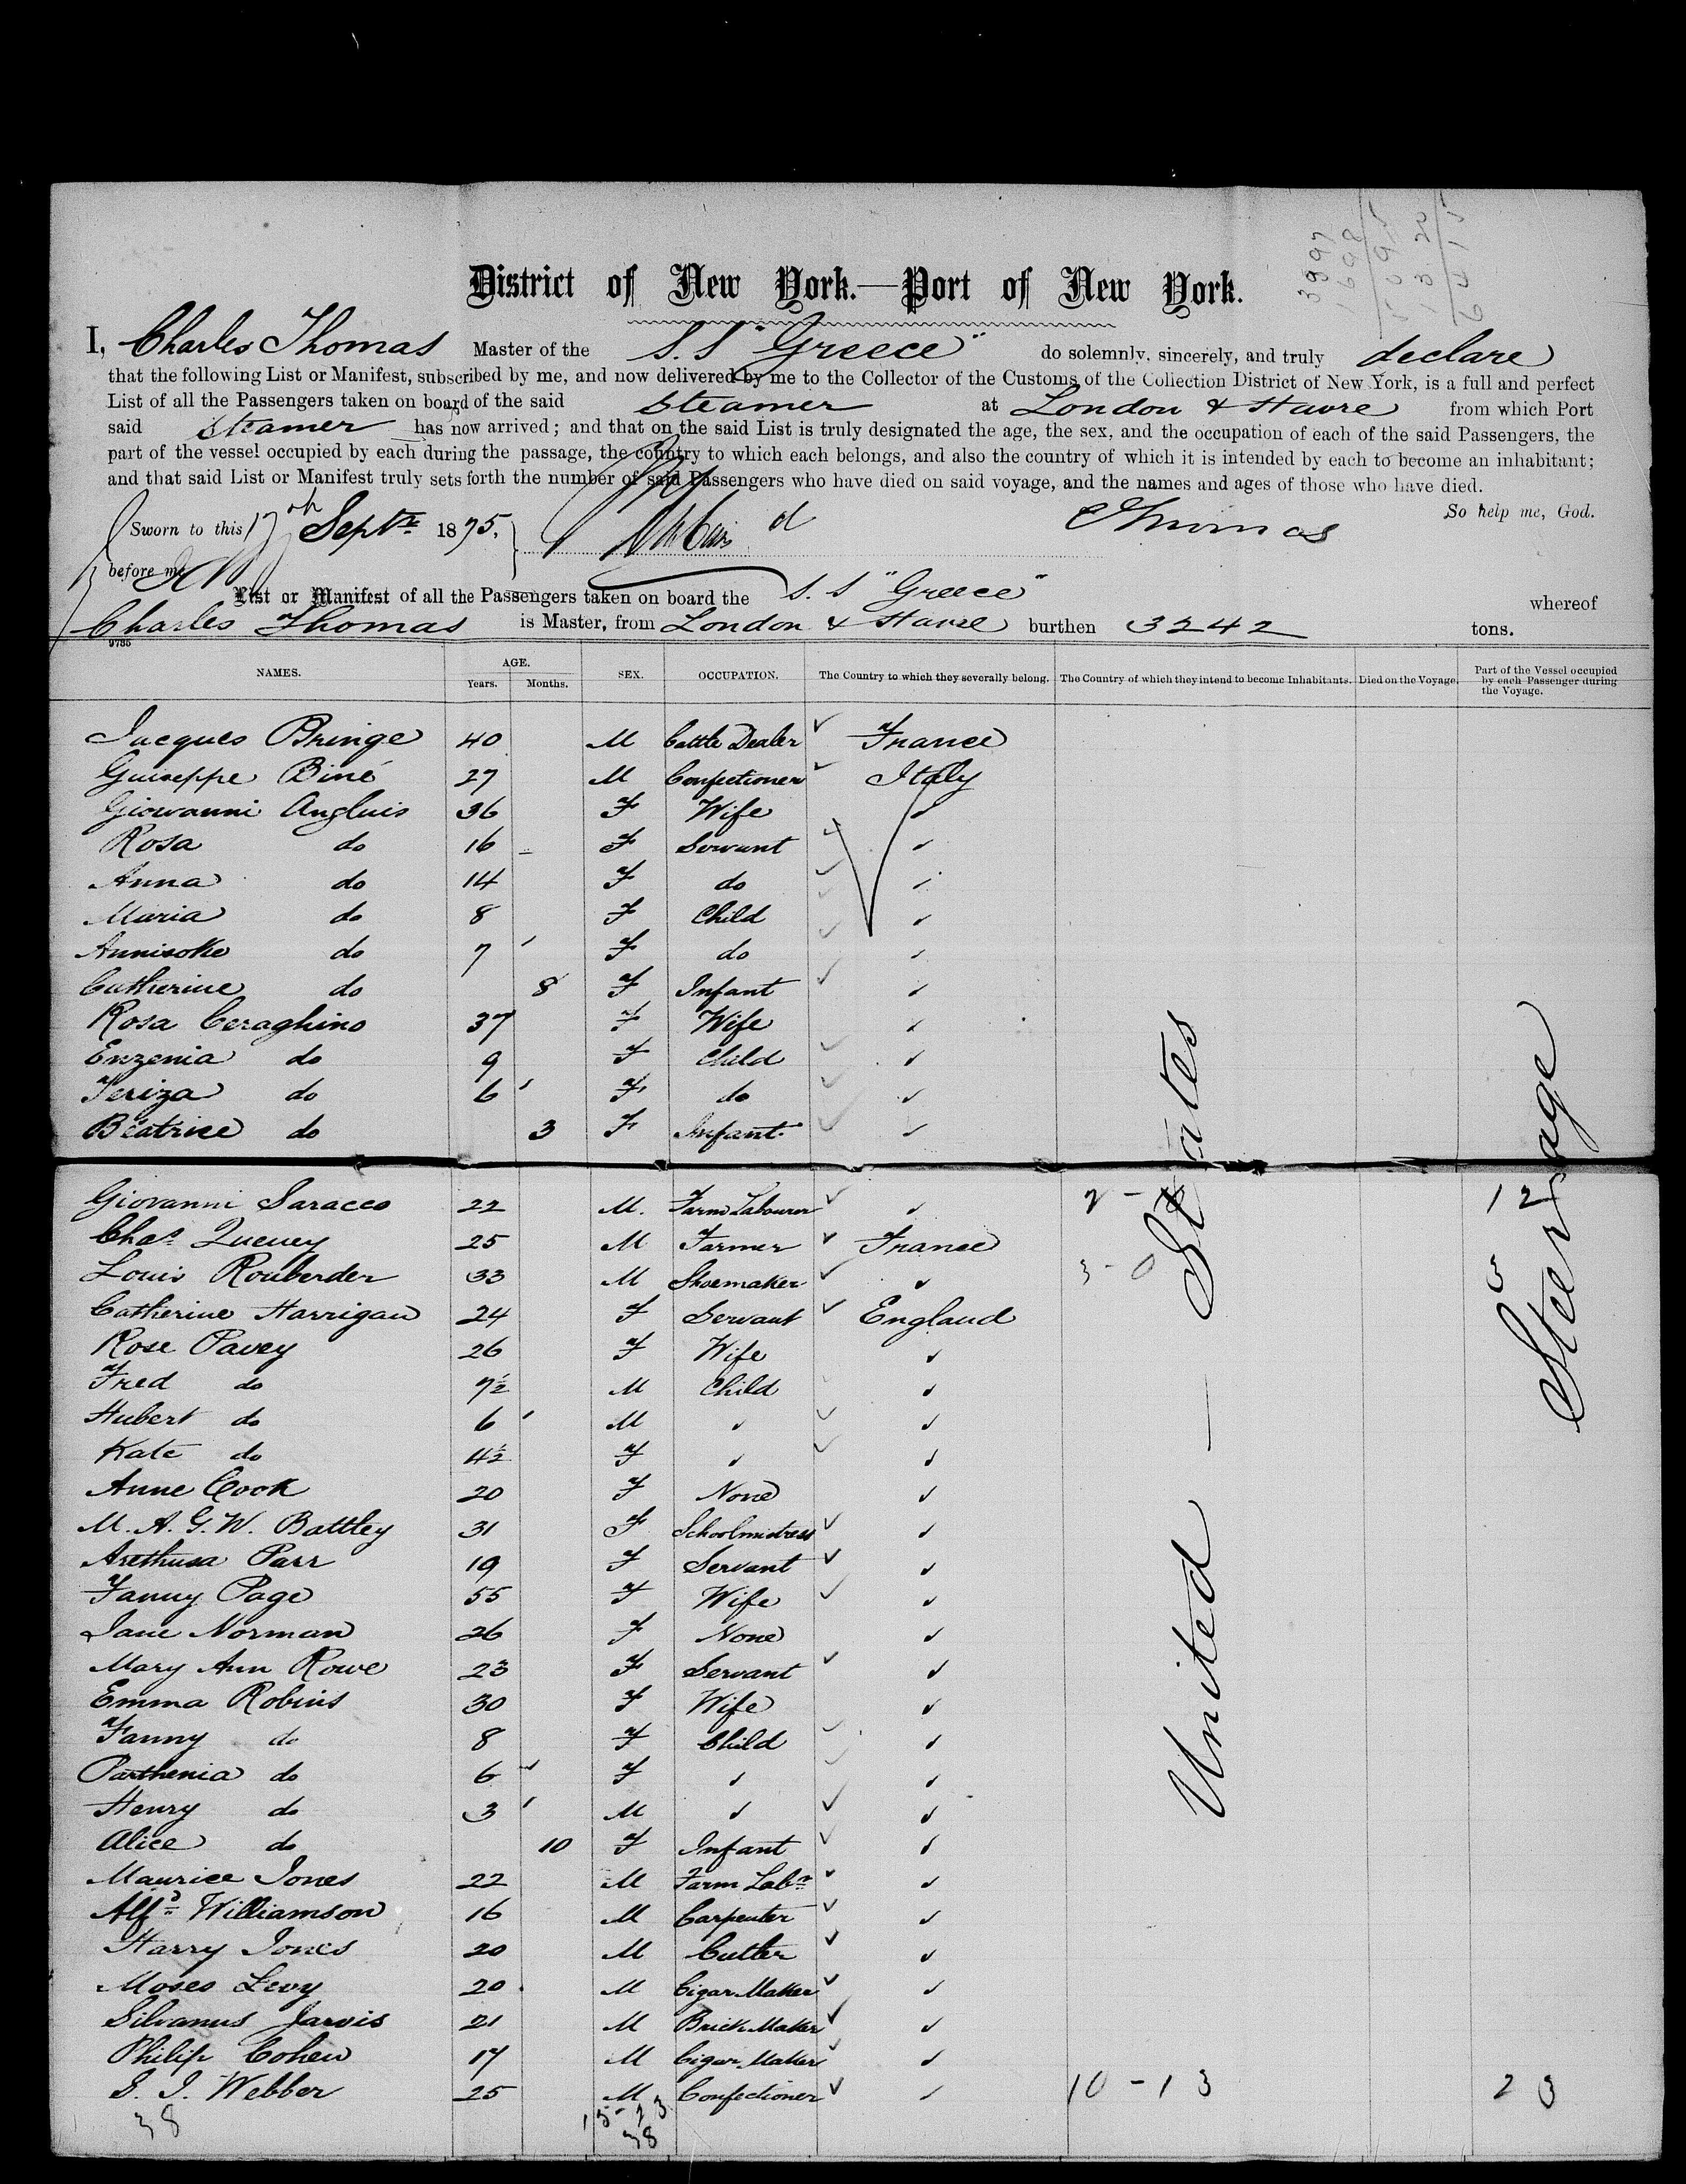 3997
1698
5695
1320
6415
District of New York.—Port of New York.
I, Charles Thomas Master of the S.S "Greece" do solemnly, sincerely, and truly declare
that the following List or Manifest, subscribed by me, and now delivered by me to the Collector of the Customs of the Collection District of New York, is a full and perfect
List of all the Passengers taken on board of the said Steamer at London & Havre from which Port
said Steamer has now arrived; and that on the said List is truly designated the age, the sex, and the occupation of each of the said Passengers, the
part of the vessel occupied by each during the passage, the country to which each belongs, and also the country of which it is intended by each to become an inhabitant;
and that said List or Manifest truly sets forth the number of said Passengers who have died on said voyage, and the names and ages of those who have died.
So help me, God.
Sworn to this 17th Septr 1875, CThomas
before me
List or Manifest of all the Passengers taken on board the S.S "Greece" whereof
Charles Thomas is Master, from London & Havre burthen 3242 tons.
9785
NAMES. AGE. Years. Months. SEX. OCCUPATION. The Country to which they severally belong. The Country of which they intend to become Inhabitants. Died on the Voyage. Part of the Vessel occupied by each Passenger during the Voyage.
Jacques Bringe 40 M Cattle Dealer ✓ France
Guiseppe Biné 27 M Confectioner ✓ Italy
Giovanni Angluis 36 F Wife ✓
Rosa do 16 – F Servant ✓ ✓
Anna do 14 F do ✓ ✓
Maria do 8 F Child ✓ ✓
Annisoke do 7 F do ✓ ✓
Catherine do 8 F Infant ✓ ✓
Rosa Ceraghino 37 F Wife ✓
Enzenia do 9 F Child ✓ ✓
Teriza do 6 F do ✓ ✓
Beatrice do 3 F Infant ✓ ✓
Giovanni Saracco 22 M. Farm Labourer ✓ ✓ 12
Chas. Queuey 25 M Farmer ✓ France
Louis Rouberder 33 M Shoemaker ✓ ✓ 3-0 3
Catherine Harrigan 24 F Servant ✓ England
Rose Pavey 26 F Wife ✓
Fred do 7½ M Child ✓
Hubert do 6 M ✓ ✓ ✓
Kate do 4½ F ✓ ✓ ✓
Anne Cook 20 F None ✓
M. A. G. W. Battley 31 F Schoolmistress ✓ ✓
Arethusa Parr 19 F Servant ✓ ✓
Fanny Page 55 F Wife ✓ ✓
Jane Norman 26 F None ✓
Mary Ann Rowe 23 F Servant ✓ ✓
Emma Robins 30 F Wife ✓
Fanny do 8 F Child ✓ ✓
Parthenia do 6 F ✓ ✓ ✓
Henry do 3 M ✓ ✓ ✓
Alice do 10 F Infant ✓ ✓
Maurice Jones 22 M Farm Labr ✓ ✓
Alfd Williamson 16 M Carpenter ✓ ✓
Harry Jones 20 M Cutler ✓ ✓
Moses Levy 20 M Cigar Maker ✓ ✓
Silvanus Jarvis 21 M Brick Maker ✓ ✓
Philip Cohen 17 M Cigar Maker ✓ ✓
S. J. Webber 25 M Confectioner ✓ ✓ 10-13 23
38 15-23
38
United — States
Steerage